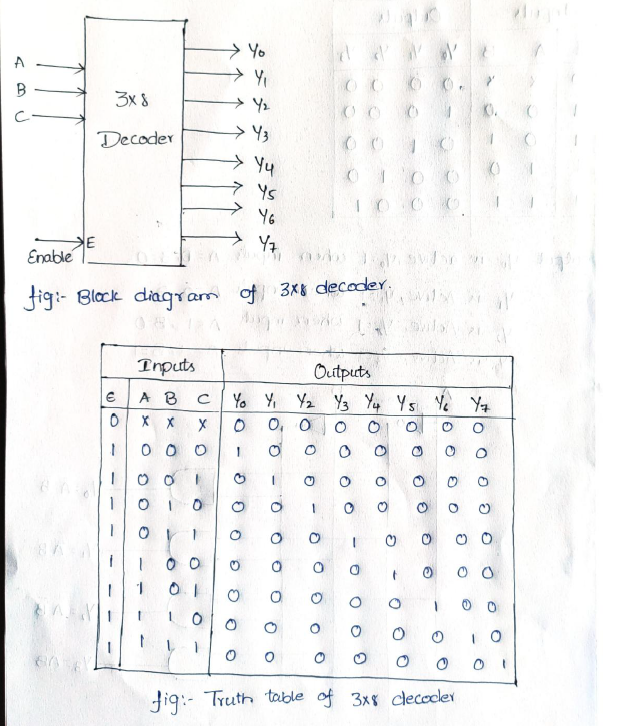 Y0
A
Y1
B
3x8
Y2
C
Decoder
Y3
Y4
Y5
Y6
E
Y7
Enable
fig:- Block diagram of 3x8 decoder.
Inputs Outputs
E A B C Y0 Y1 Y2 Y3 Y4 Y5 Y6 Y7
0 x x x 0 0 0 0 0 0 0 0
1 0 0 0 1 0 0 0 0 0 0 0
1 0 0 1 0 1 0 0 0 0 0 0
1 0 1 0 0 0 1 0 0 0 0 0
1 0 1 1 0 0 0 1 0 0 0 0
1 1 0 0 0 0 0 0 1 0 0 0
1 1 0 1 0 0 0 0 0 1 0 0
1 1 1 0 0 0 0 0 0 0 1 0
1 1 1 1 0 0 0 0 0 0 0 1
fig:- Truth table of 3x8 decoder